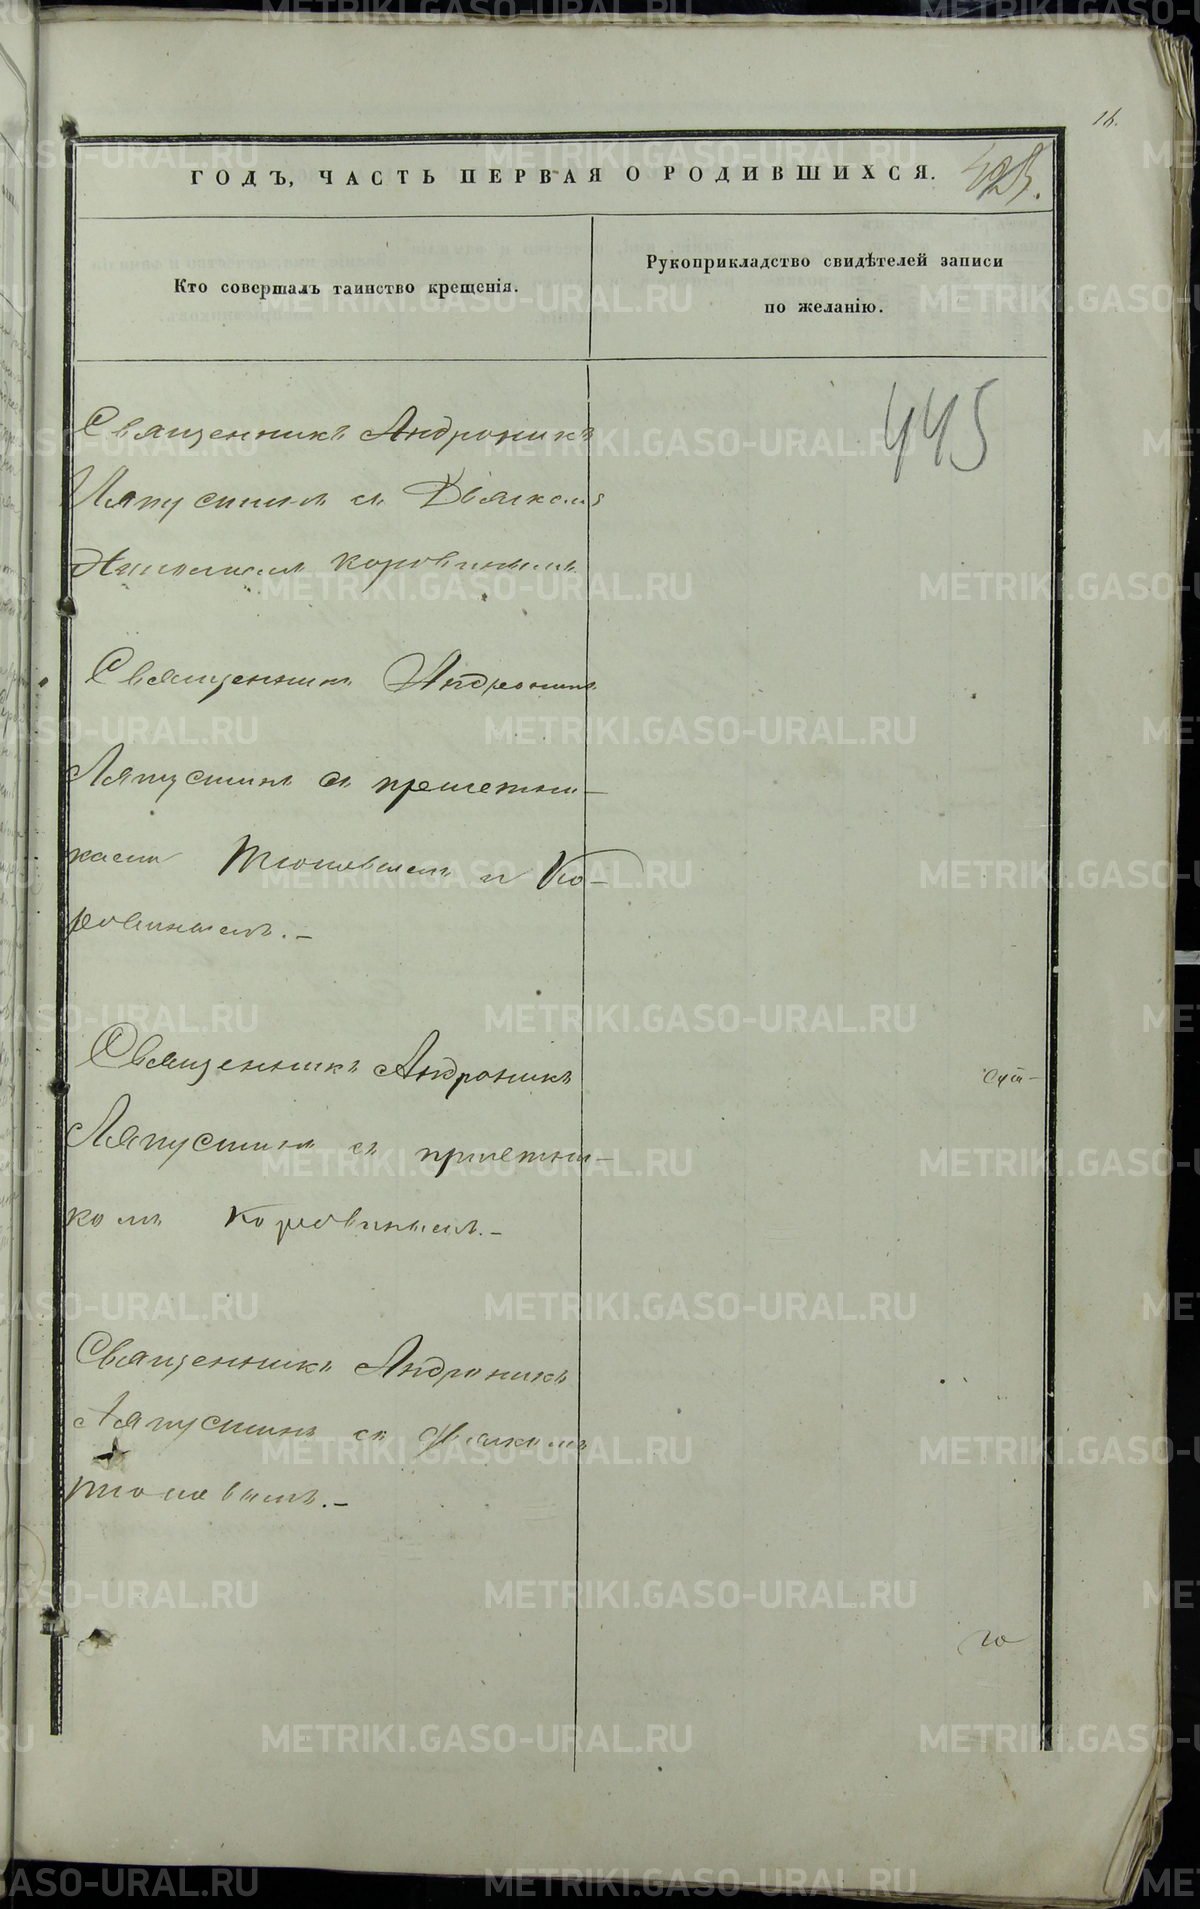 16.
ГОДЪ, ЧАСТЬ ПЕРВАЯ О РОДИВШИХСЯ.
Кто совершалъ таинство крещенія.
Рукоприкладство свидѣтелей записи
по желанію.
445
Священникъ Андроникъ
Ляпустинъ съ Дьякомъ
Коровинымъ
Священникъ Андроникъ
Ляпустинъ съ причетни-
ками и Ко-
ровинымъ.-
Священникъ Андроникъ
Ляпустинъ съ причетни-
комъ Коровинымъ.-
Священникъ Андроникъ
Ляпустинъ съ
METRIKI.GASO-URAL.RU